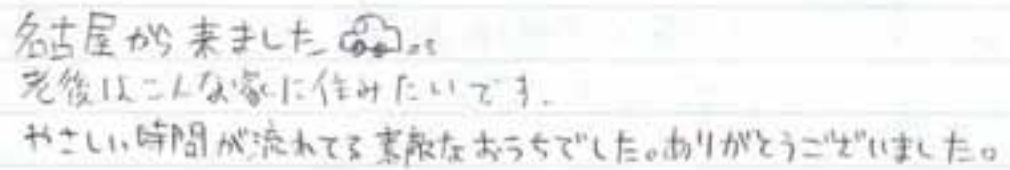 名古屋から来ました
老後はこんな家に住みたいです.
やさしい時間が流れてる素敵なおうちでした。ありがとうございました。